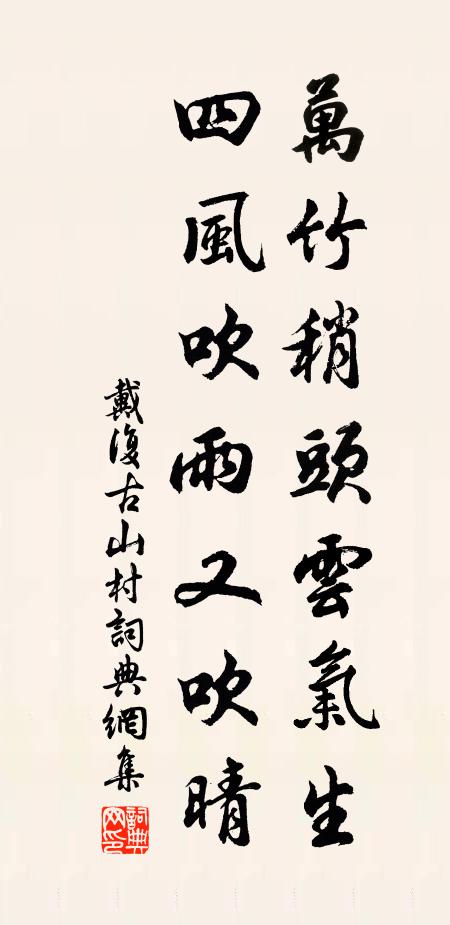 萬竹稍頭雲氣生
四風吹雨又吹晴
戴復古山村詞典網集
詞典網印